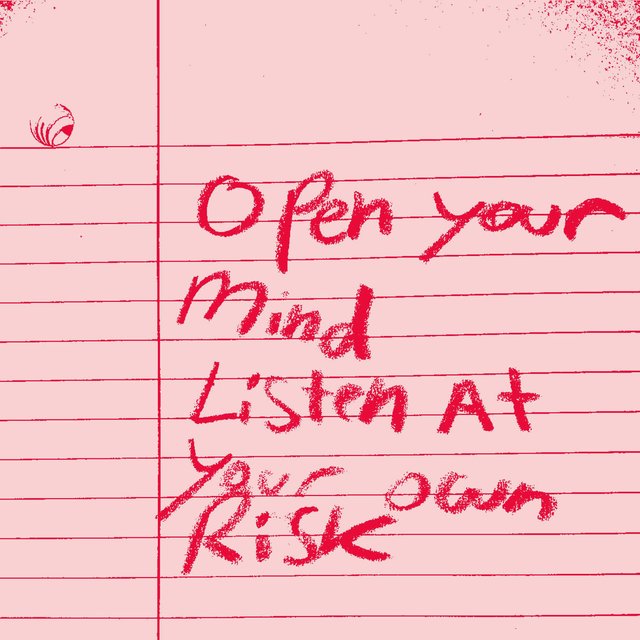 Open your
Mind
Listen At
Your own
Risk